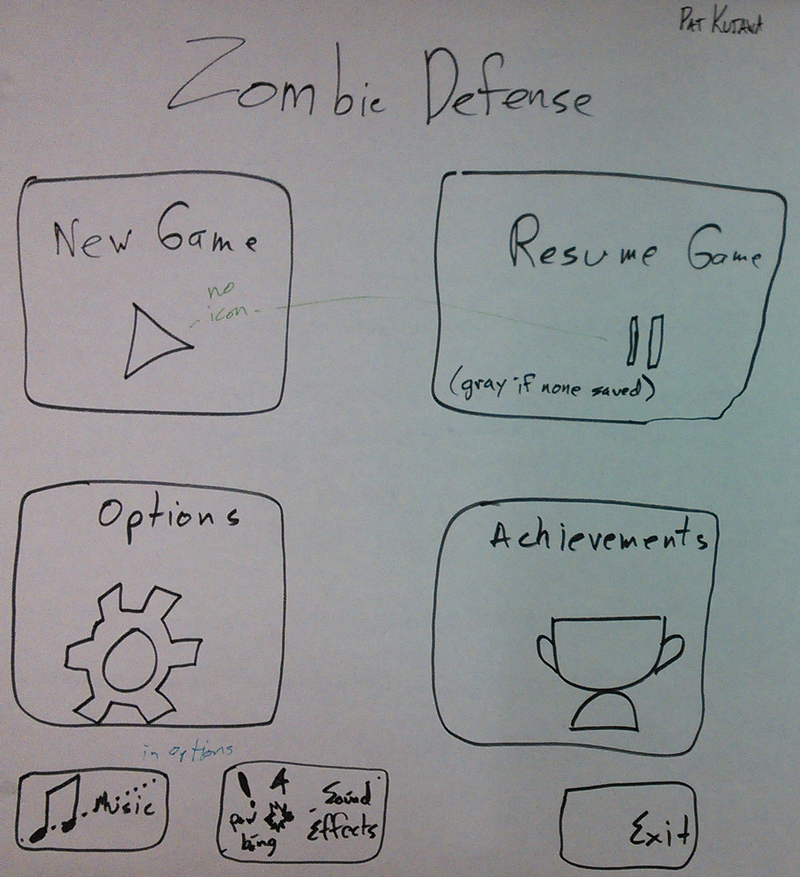 PAT KUJAWA
Zombie Defense
New Game
no
icon
Resume Game
(gray if none saved)
Options
Achievements
in options
Music
pow
bing
Sound
Effects
Exit